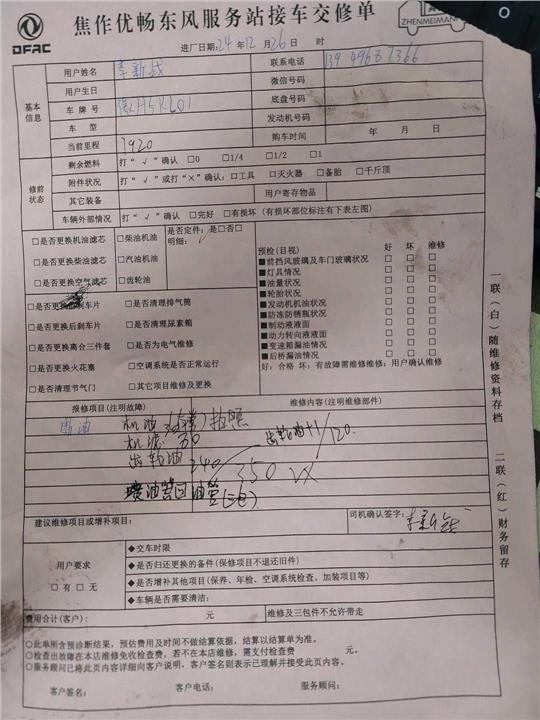 DFAC
焦作优畅东风服务站接车交修单
ZHENMEIMAN
进厂日期: 24 年 12 月 26 日 时
基本信息
用户姓名
联系电话
用户生日
微信号码
车牌号
底盘号码
车型
发动机号码
当前里程 1920
购车时间 年 月 日
修前状态
剩余燃料 打“√”确认 □0 □1/4 □1/2 □1
附件状况 打“√”或打“×”确认: □工具 □灭火器 □备胎 □千斤顶
其它装备
用户寄存物品
车辆外部情况 打“√”确认 □完好 □有损坏(有损坏部位标注有下表左图)
□是否更换机油滤芯 □柴油机油 是否定件: □是□否□
明细:
□是否更换柴油滤芯 □汽油机油
□是否更换空气滤芯 □齿轮油
□是否更换前刹车片 □是否清理排气筒
□是否更换后刹车片 □是否清理尿素箱
□是否更换离合三件套 □是否为电气维修
□是否更换火花塞 □空调系统是否正常运行
□是否清理节气门 □其它项目维修及更换
预检(目视) 好 坏 维修
■前挡风玻璃及车门玻璃状况 □ □ □
■灯具情况 □ □ □
■油量状况 □ □ □
■轮胎状况 □ □ □
■发动机机油状况 □ □ □
■防冻防锈瓶状况 □ □ □
■制动液液面 □ □ □
■动力转向液液面 □ □ □
■变速箱漏油情况 □ □ □
■后桥漏油情况 □ □ □
好: 合格 坏: 有故障需维修维修: 用户确认维修
报修项目(注明故障)
维修内容(注明维修部件)
机油 拍照
机滤 30
齿轮油 240
齿轮油+1/120.
350
喷油管回油管
建议维修项目或增补项目:
司机确认签字:
用户要求
□有 □无
◆交车时限
◆是否归还更换的备件(保修项目不退还旧件)
◆是否增补其他项目(保养、年检、空调系统检查、加装项目等)
◆车辆是否需要清洁:
费用合计(客户): 元
维修及三包件不允许带走
○此单所含预诊断结果, 预估费用及时间不做结算依据, 结算以结算单为准。
○检查出故障在本店维修免收检查费, 若不在本店维修, 需支付检查费 元。
○服务顾问已将此页内容详细向客户说明, 客户签名则表示已理解并接受此页内容。
客户签名: 客户电话: 服务顾问:
一联(白)随维修资料存档
二联(红)财务留存